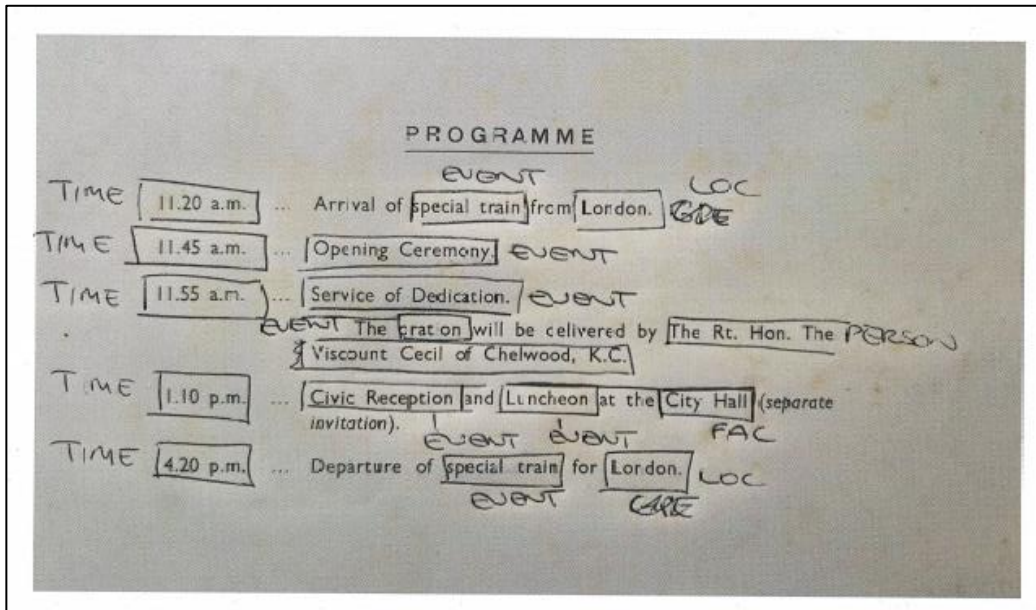 PROGRAMME
EVENT LOC
TIME 11.20 a.m. ... Arrival of special train from London. GPE
TIME 11.45 a.m. ... Opening Ceremony. EVENT
TIME 11.55 a.m. ... Service of Dedication. EVENT
EVENT The oration will be celivered by The Rt. Hon. The PERSON
Viscount Cecil of Chelwood, K.C.
TIME 1.10 p.m. ... Civic Reception and Luncheon at the City Hall (separate
invitation). EVENT EVENT FAC
TIME 4.20 p.m. ... Departure of special train for London. LOC
EVENT GPE